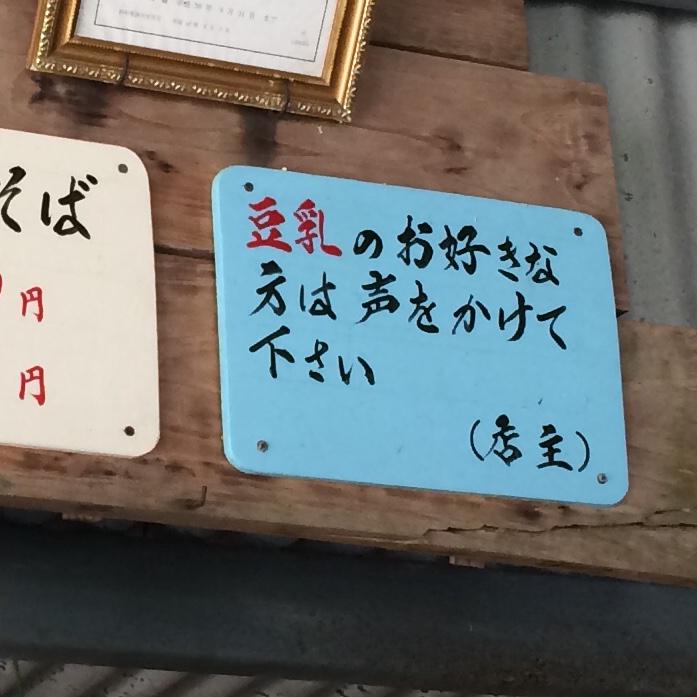 そば
円
円
豆乳のお好きな
方は声をかけて
下さい
（店主）